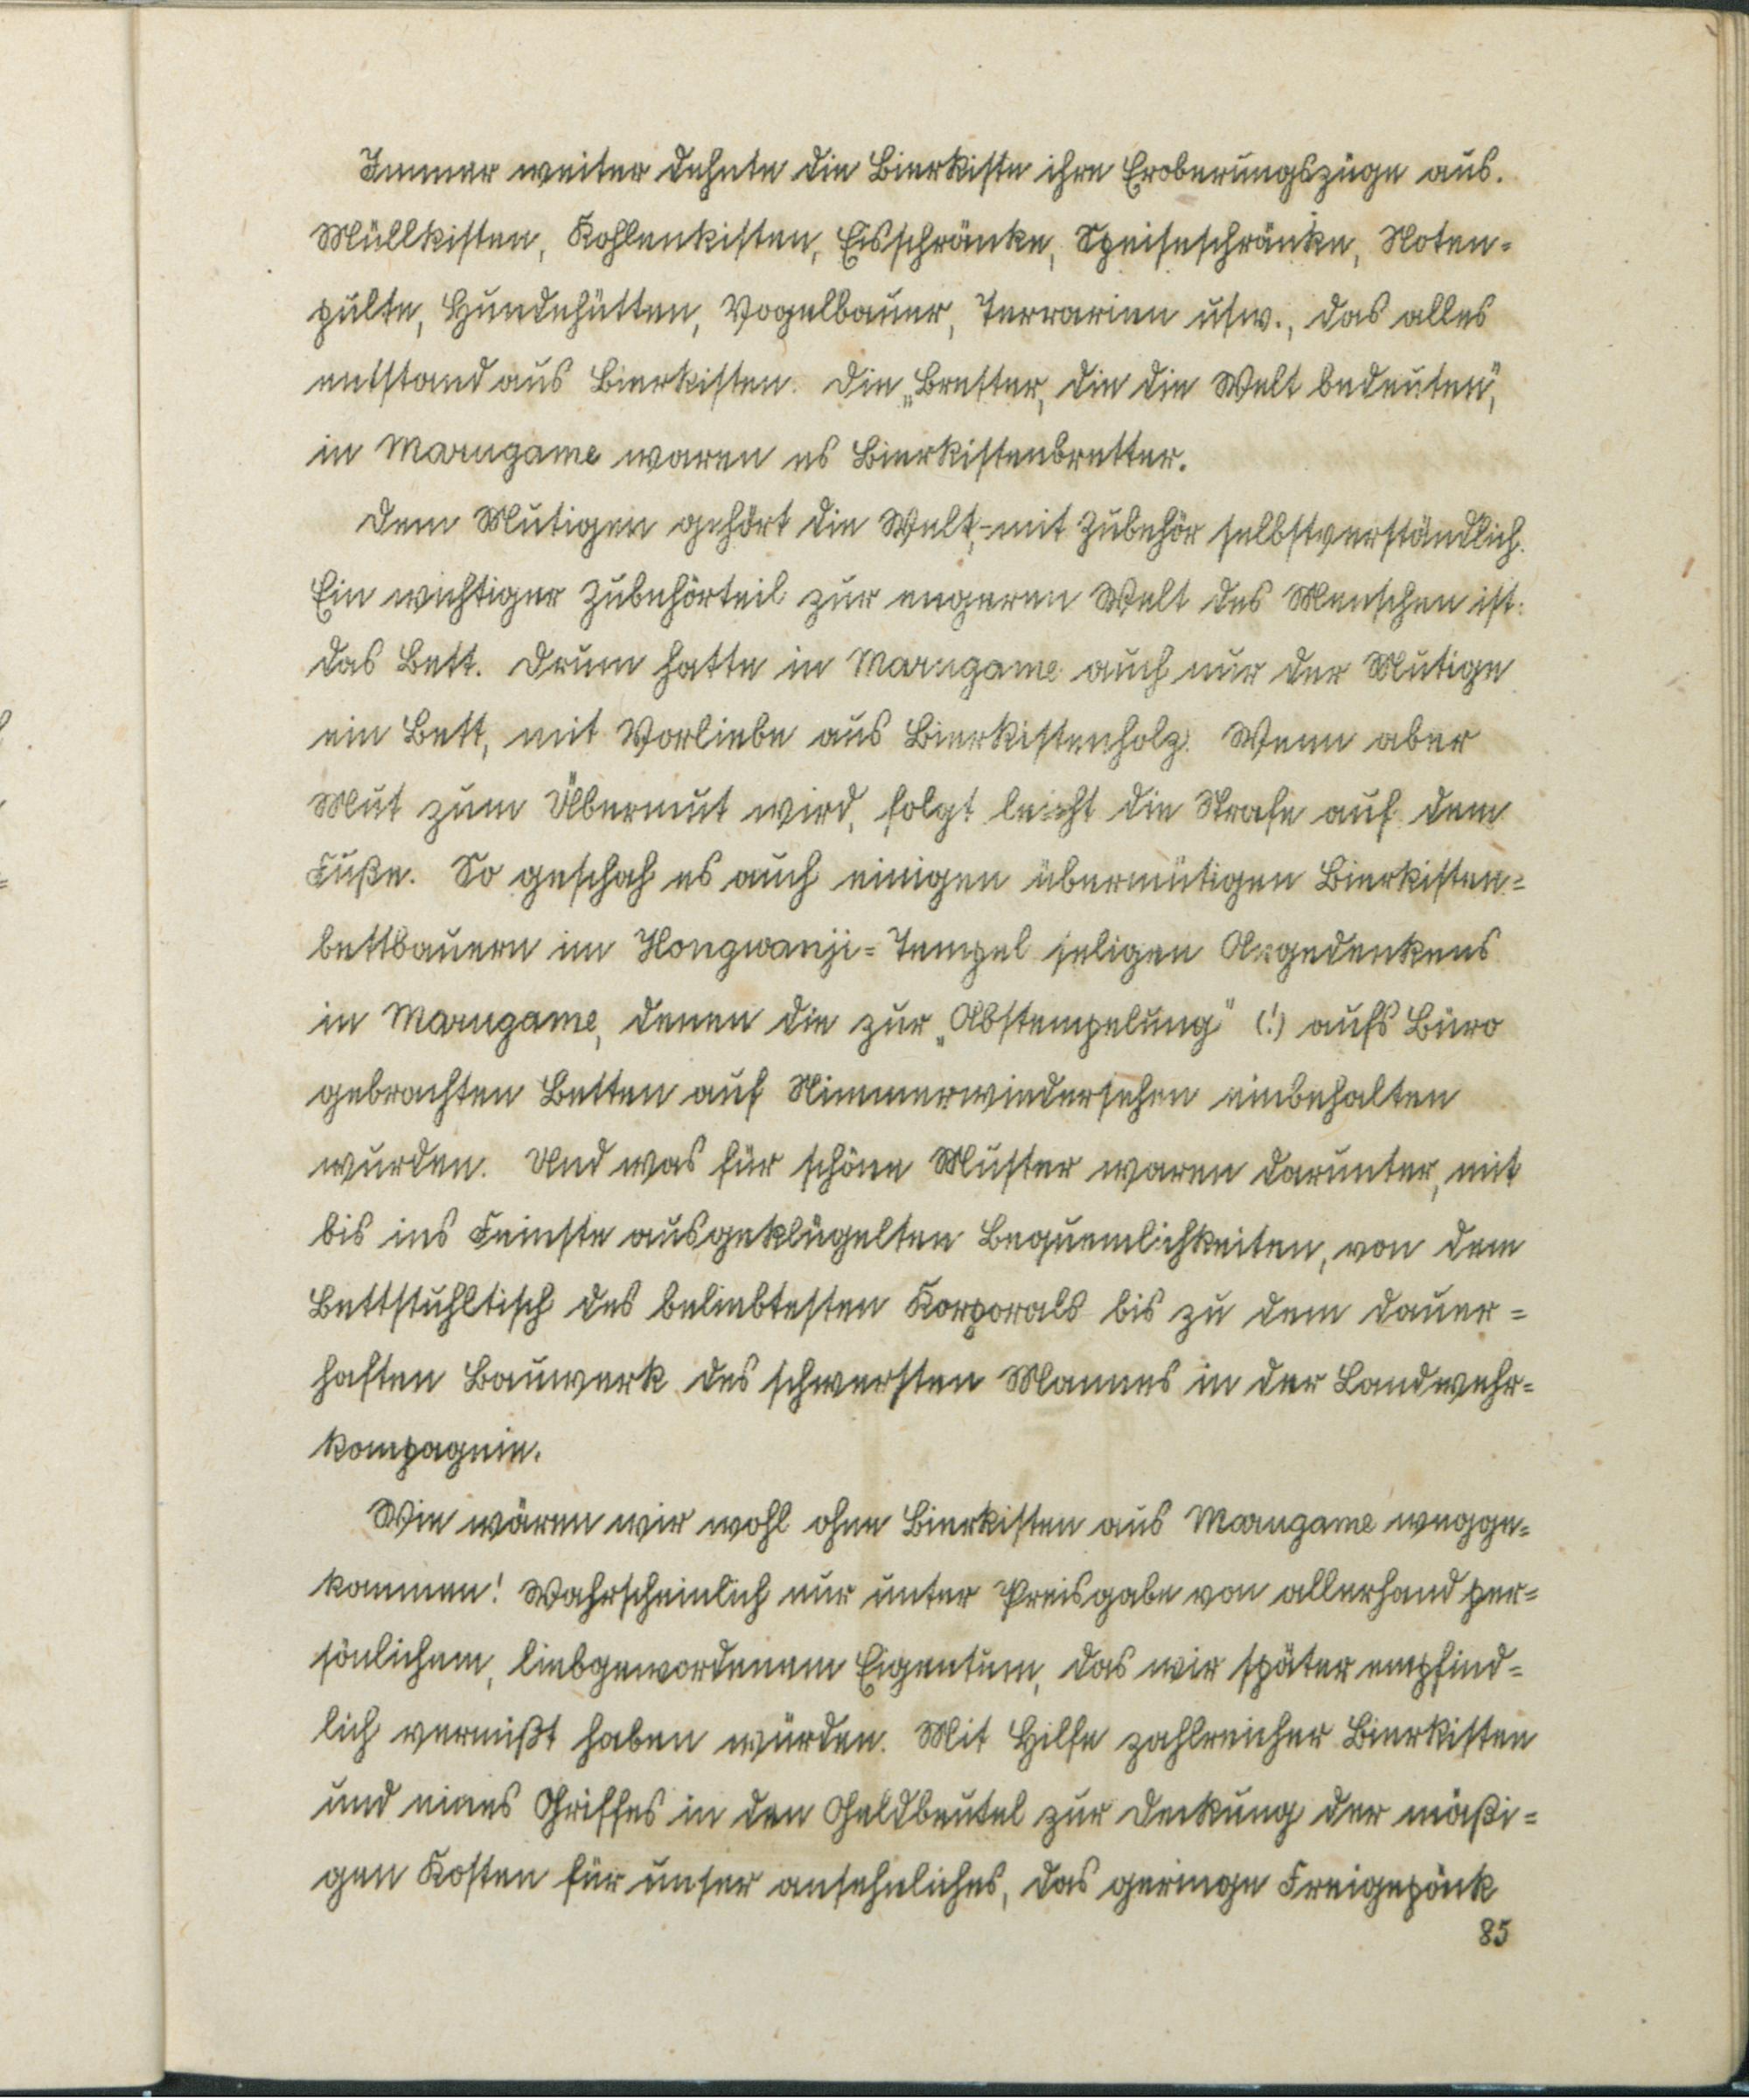 Immer weiter dehnte die Bierkiste ihre Eroberungszüge aus.
Müllkisten, Kohlenkisten, Eisschränke, Speiseschränke, Noten-
pulte, Hundehütten, Vogelbauer, Terrarien usw., das alles
entstand aus Bierkisten. Die „Bretter, die die Welt bedeuten",
in Marugame waren es Bierkistenbretter.
Dem Mutigen gehört die Welt,- mit Zubehör selbstverständlich.
Ein wichtiger Zubehörteil zur engeren Welt des Menschen ist:
das Bett. Drum hatte in Marugame auch nur der Mutige
ein Bett, mit Vorliebe aus Bierkistenholz. Wenn aber
Mut zum Übermut wird, folgt leicht die Strafe auf dem
Fuße. So geschah es auch einigen übermütigen Bierkisten-
bettbauern im Hongwanji-Tempel seligen Angedenkens
in Marugame, denen die zur „Abstempelung" (!) aufs Büro
gebrachten Betten auf Nimmerwiedersehen einbehalten
wurden. Und was für schöne Muster waren darunter, mit
bis ins Feinste ausgeklügelten Bequemlichkeiten, von dem
Bettstuhltisch des beliebtesten Korporals bis zu dem dauer-
haften Bauwerk des schwersten Mannes in der Landwehr-
kompagnie.
Wie wären wir wohl ohne Bierkisten aus Marugame wegge-
kommen! Wahrscheinlich nur unter Preisgabe von allerhand per-
sönlichem, liebgewordenem Eigentum, das wir später empfind-
lich vermißt haben würden. Mit Hilfe zahlreicher Bierkisten
und eines Griffes in den Geldbeutel zur Deckung der mäßi-
gen Kosten für unser ansehnliches, das geringe Freigepäck
85